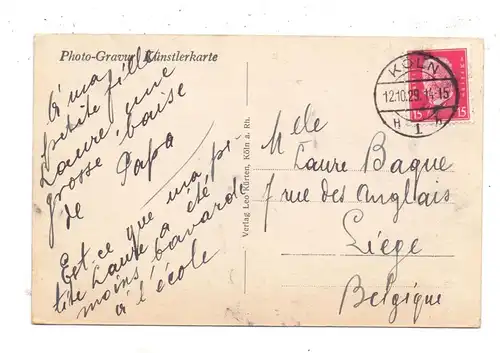 Photo-Gravur Künstlerkarte
à ma
petite fille
Laure, une
grosse baise
de Papa
Est-ce que ma pe
tite Laure a été
moins bavarde
à l'école
Verlag Leo Kürten, Köln a. Rh.
KÖLN
12.10.29. 14-15
H 1 h
15 15
Mele
Laure Baque
7 rue des Anglais
Liège
Belgique